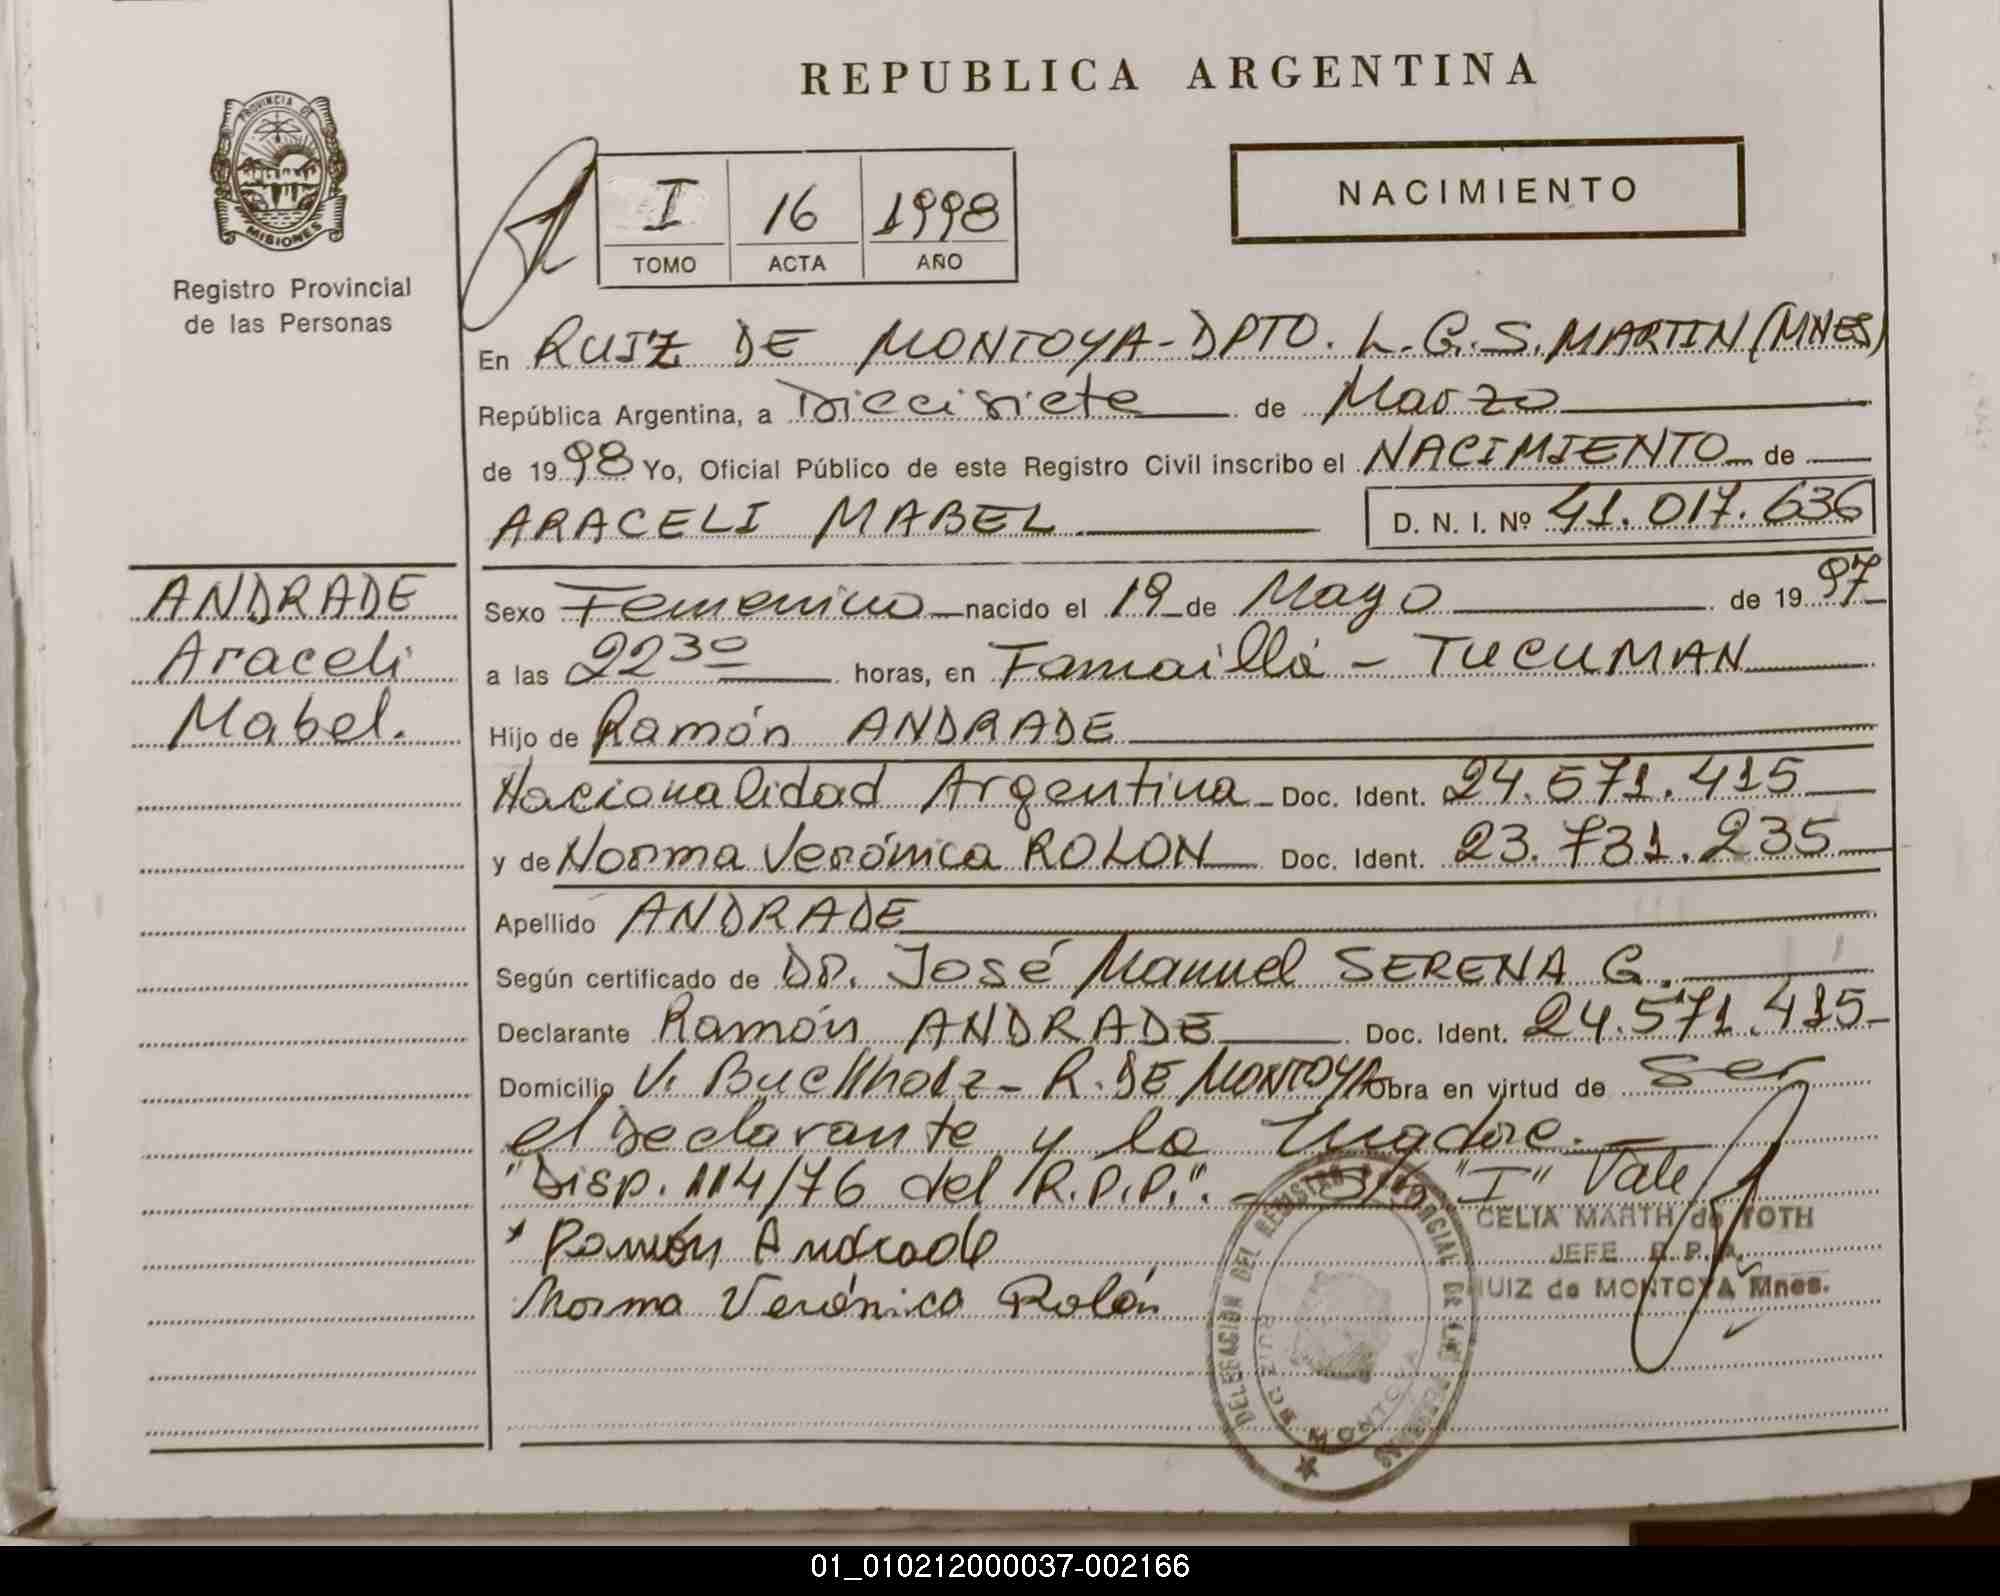 REPUBLICA ARGENTINA
PROVINCIA DE
MISIONES
Registro Provincial
de las Personas
I 16 1998
TOMO ACTA AÑO
NACIMIENTO
En RUIZ DE MONTOYA-DPTO. L.G.S. MARTIN (MNES)
República Argentina, a Diecisiete de Marzo
de 1998 Yo, Oficial Público de este Registro Civil inscribo el NACIMIENTO de
ARACELI MABEL D. N. I. Nº 41.017.636
ANDRADE
Araceli
Mabel.
Sexo Femenino nacido el 19 de Mayo de 1997
a las 22 30 horas, en Famaillá - TUCUMAN
Hijo de Ramón ANDRADE
Nacionalidad Argentina Doc. Ident. 24.571.415
y de Norma Verónica ROLON Doc. Ident. 23.731.235
Apellido ANDRADE
Según certificado de DR. José Manuel SERENA G.
Declarante Ramón ANDRADE Doc. Ident. 24.571.415
Domicilio V. Buchholz - R. DE MONTOYA Obra en virtud de ser
el Declarante y la Madre.
"Disp. 114/76 del R.P.P.". - S/r "I" Vale
* Ramón Andrade
Norma Verónica Rolón
CELIA MARTH de TOTH
JEFE R. P. P.
RUIZ de MONTOYA Mnes.
DELEGACION DEL REGISTRO PROVINCIAL DE LAS PERSONAS
RUIZ DE MONTOYA
01_010212000037-002166